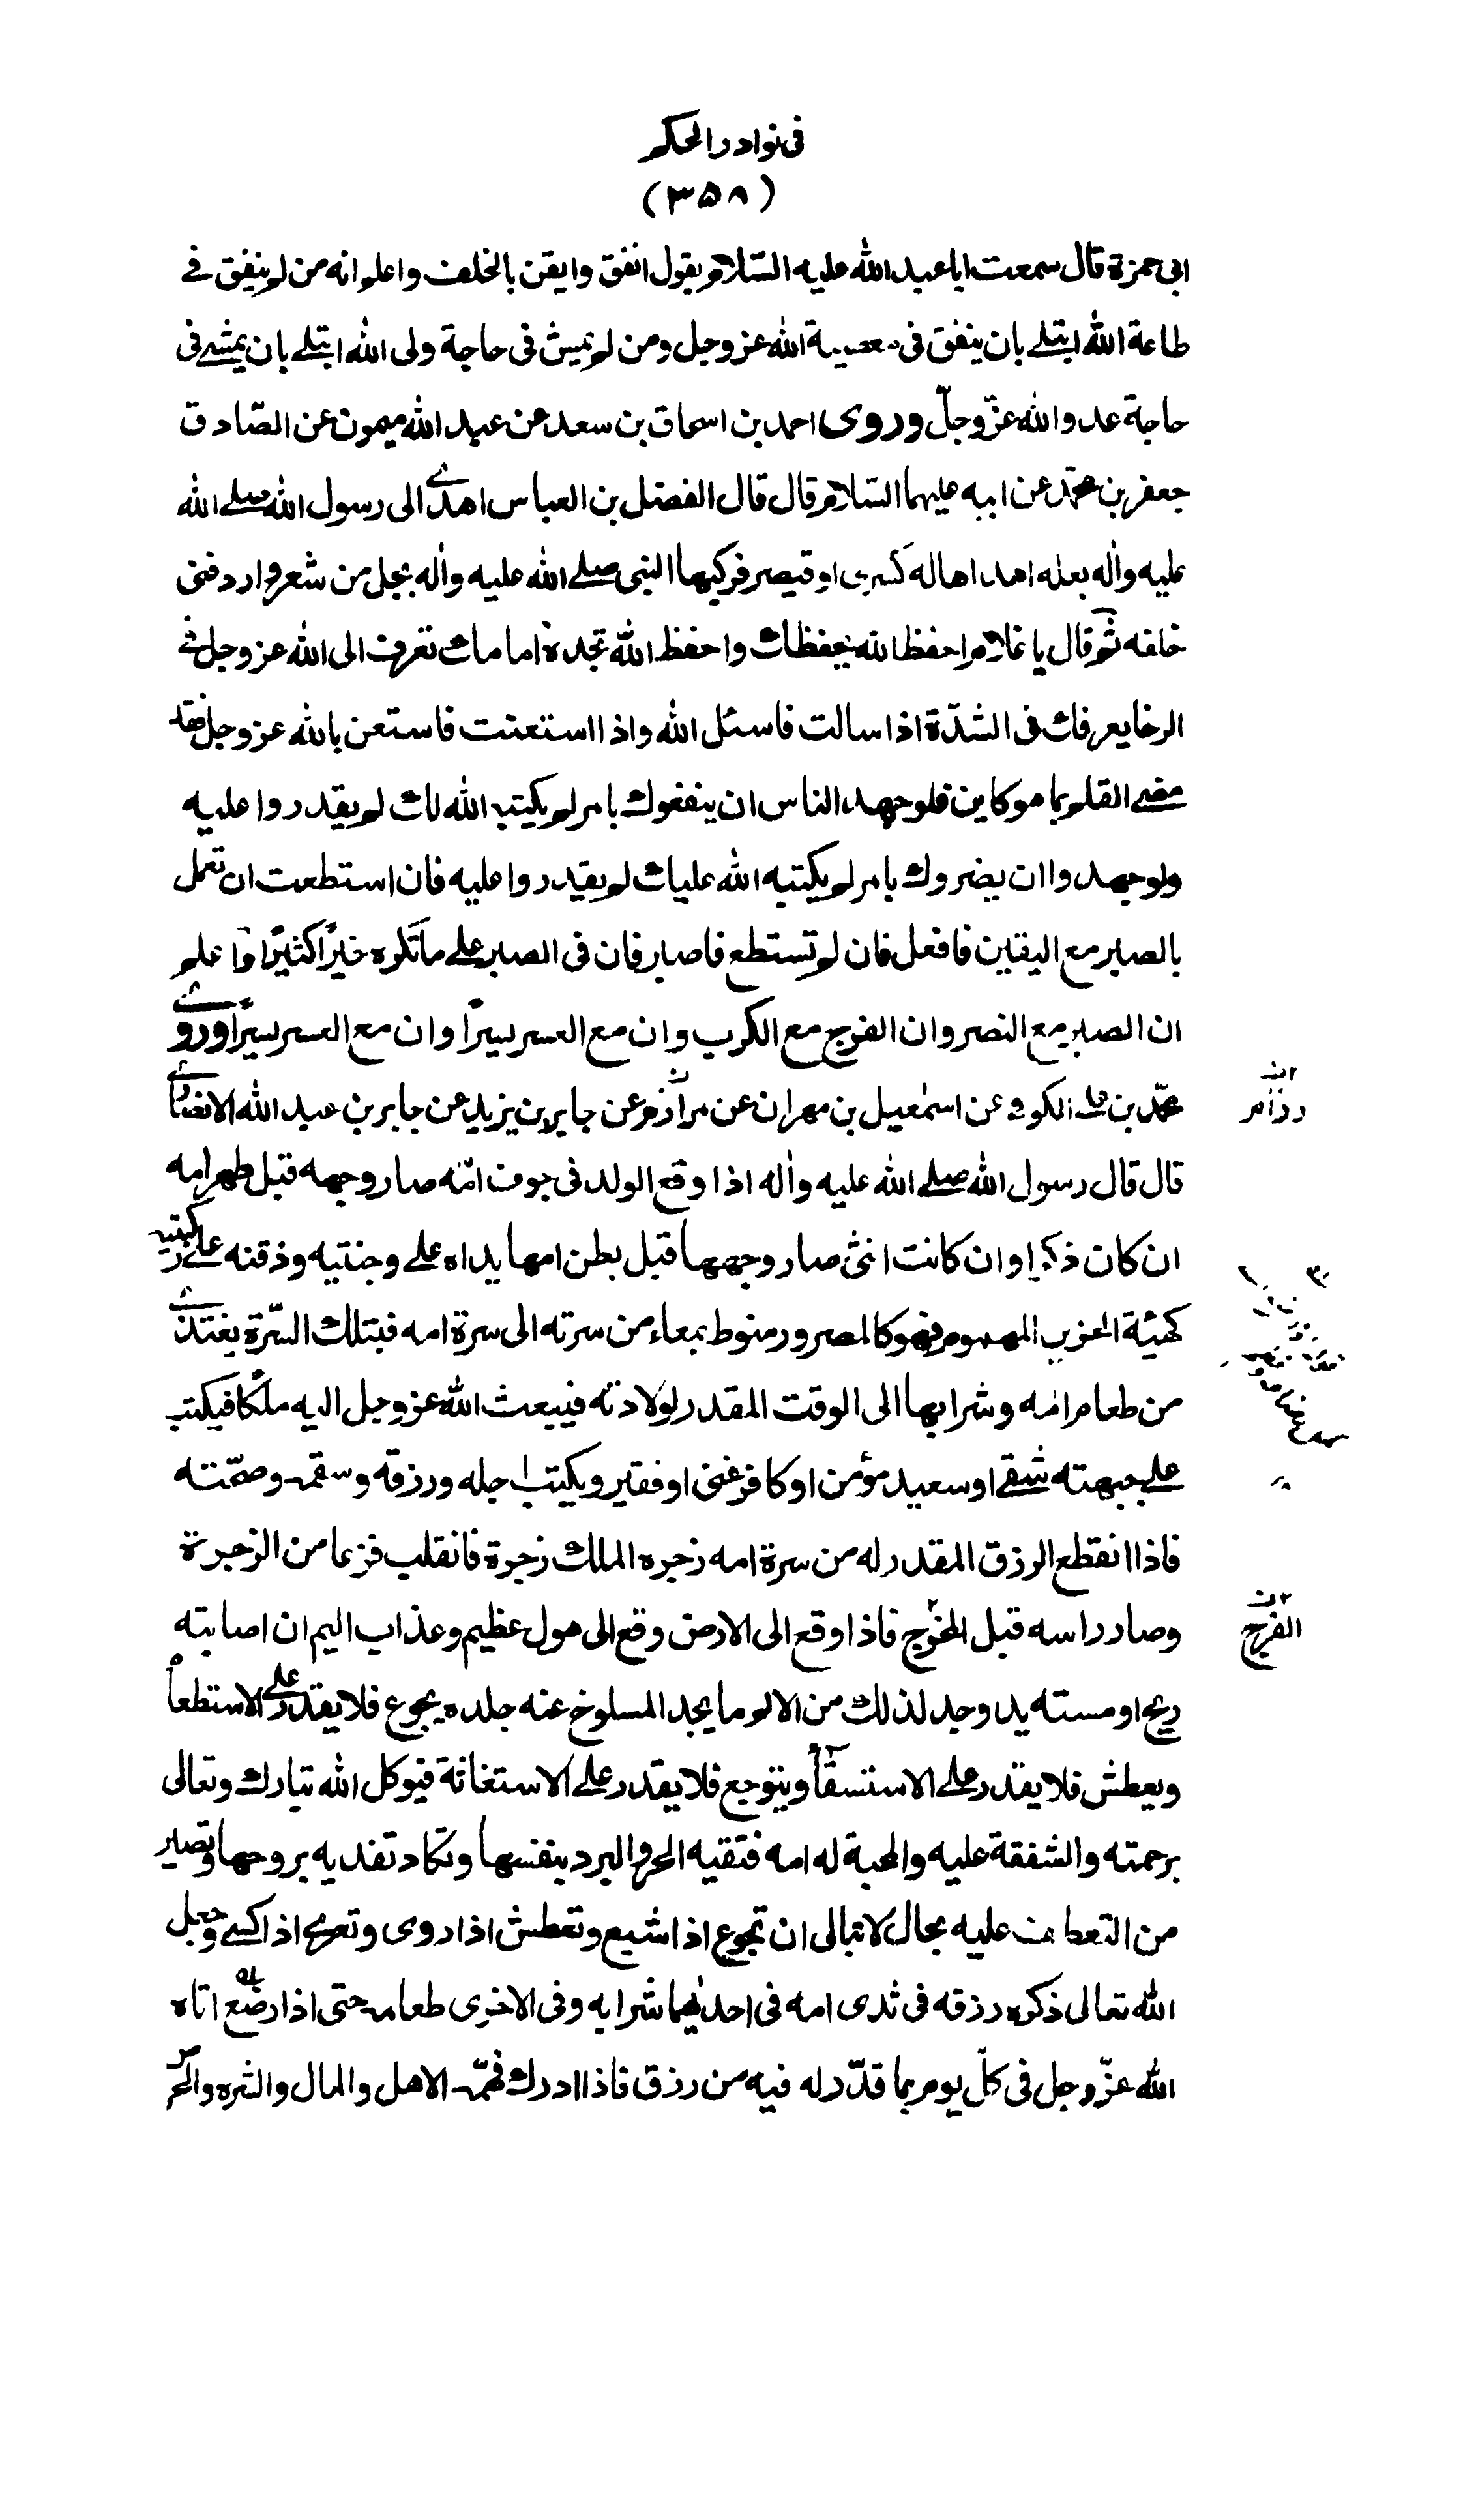 فى نوادر الحكم
(٣٥٨)
ابى حمزة قال سمعت ابا عبد الله عليه السّلام يقول انفق وايقن بالخلف واعلم انه من لم ينفق فے
طاعة الله ابتلے بان ينفق فى معصية الله عز وجل ومن لم يمش فى حاجة ولى الله ابتلے بان يمشے فى
حاجة عدو الله عزّ وجلّ وروى احمد بن اسحاق بن سعد عن عبد الله ميمون عن الصّادق
جعفر بن محمّد عن ابيه عليهما السّلام قال قال الفضل بن العباس اهدے الى رسول الله صلے الله
عليه واٰله بغله اهداها له كسرى او قيصر فركبها النبى صلے الله عليه واٰله بجل من شعر واردفنى
خلفه ثم قال يا غلام احفظ الله يحفظك واحفظ الله تجده امامك تعرف الى الله عز وجل فے
الرخا يعرفك فى الشدّة اذا سالت فاسئل الله واذا استعنت فاستعن بالله عز وجل فقد
مضے القلم بما هو كاين فلو جهد الناس ان ينفعوك بامر لم يكتبه الله لك لم يقدروا عليه
ولو جهدوا ان يضروك بامر لم يكتبه الله عليك لم يقدروا عليه فان استطعت ان تعمل
بالصبر مع اليقين فافعل فان لم تستطع فاصبر فان فى الصبر علے ما تكره خيرًا كثيرًا واعلم
ان الصبر مع النصر وان الفرج مع الكرب وان مع العسر يسرًا وان مع العسر يسرًا وروے
محمّد بن علے الكوفے عن اسمٰعيل بن مهران عن مرازم عن جابر بن يزيد عن جابر بن عبد الله الانصارے
قال قال رسول الله صلے الله عليه واٰله اذا وقع الولد فى جوف امّه صار وجهه قبل ظهر امه
ان كان ذكرا وان كانت انثى صار وجهها قبل بطن امها يداه علے وجنتيه وذقنه علے ركبتيه
كهيئة الحزين المهموم فهو كالمصرور منوط بمعاء من سرته الى سرة امه فبتلك السّرة يغتذے
من طعام امه وشرابها الى الوقت المقدر لولادته فيبعث الله عز وجل اليه ملكا فيكتب
علے جبهته شقے او سعيد مؤمن او كافر غنى او فقير ويكتب اجله ورزقه وسقمه وصحّته
فاذا انقطع الرزق المقدر له من سرة امه زجره الملك زجرة فانقلب فزعا من الزجرة
وصار راسه قبل المخرج فاذا وقع الى الارض وقع الى هول عظيم وعذاب اليم ان اصابته
ريح او مسته يد وجد لذلك من الالم ما يجد المسلوخ عنه جلده يجوع فلا يقدر علے الاستطعام
ويعطش فلا يقدر علے الاستسقاء ويتوجع فلا يقدر علے الاستغاثة فيوكل الله تبارك وتعالى
برحمته والشفقة عليه والمحبة له امه فتقيه الحر والبرد بنفسها وتكاد تفديه بروحها وتصير
من التعطف عليه بحال لا تبالى ان تجوع اذا شبع وتعطش اذا روى وتعرے اذا كسے وجعل
الله تعالى ذكره رزقه فى ثدى امه فى احديهما شرابه وفى الاخرى طعامه حتى اذا رضع اتاه
الله عزّ وجل فى كلّ يوم بما قدّر له فيه من رزق فاذا ادرك فهمّه الاهل والمال والشره والحرص
الفرج